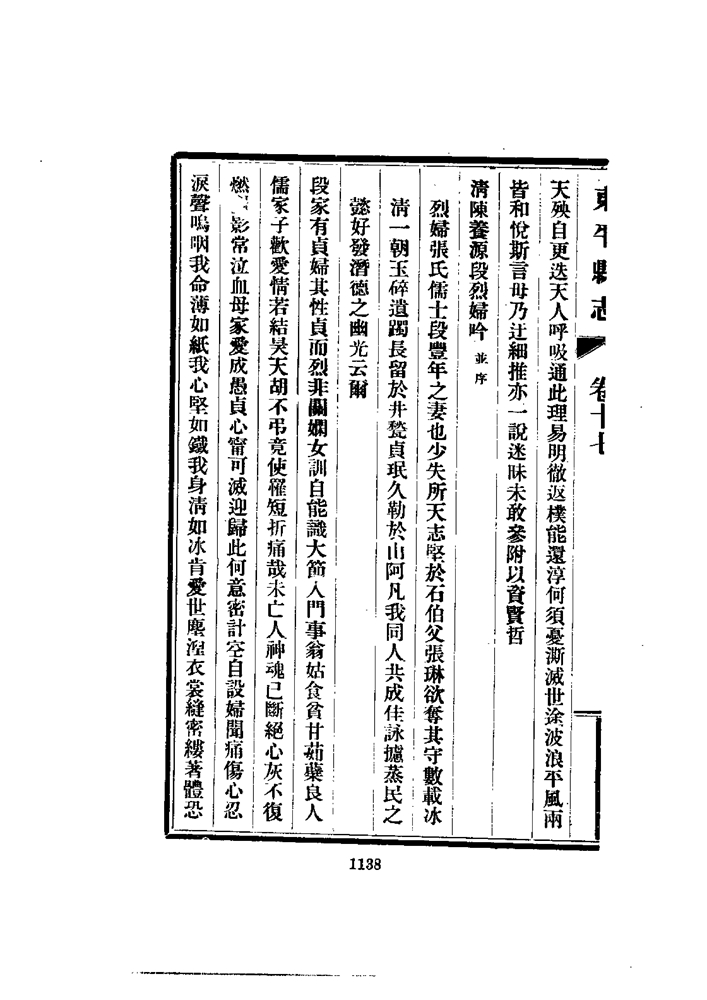 東平縣志 卷十七
天殃自更迭天人呼吸通此理易明徹返樸能還淳何須憂澌滅世途波浪平風雨
皆和悅斯言毋乃迂細推亦一說迷昧未敢參附以資賢哲
清陳養源段烈婦吟 並序
烈婦張氏儒士段豐年之妻也少失所天志堅於石伯父張琳欲奪其守數載冰
清一朝玉碎遺躅長留於井甃貞珉久勒於山阿凡我同人共成佳詠攄蒸民之
懿好發潛德之幽光云爾
段家有貞婦其性貞而烈非關嫻女訓自能識大節入門事翁姑食貧甘茹蘗良人
儒家子歡愛情若結昊天胡不弔竟使罹短折痛哉未亡人神魂已斷絕心灰不復
燃影常泣血母家愛成愚貞心甯可滅迎歸此何意密計空自設婦聞痛傷心忍
淚聲嗚咽我命薄如紙我心堅如鐵我身清如冰肯愛世塵涅衣裳縫密縷著體恐
1138